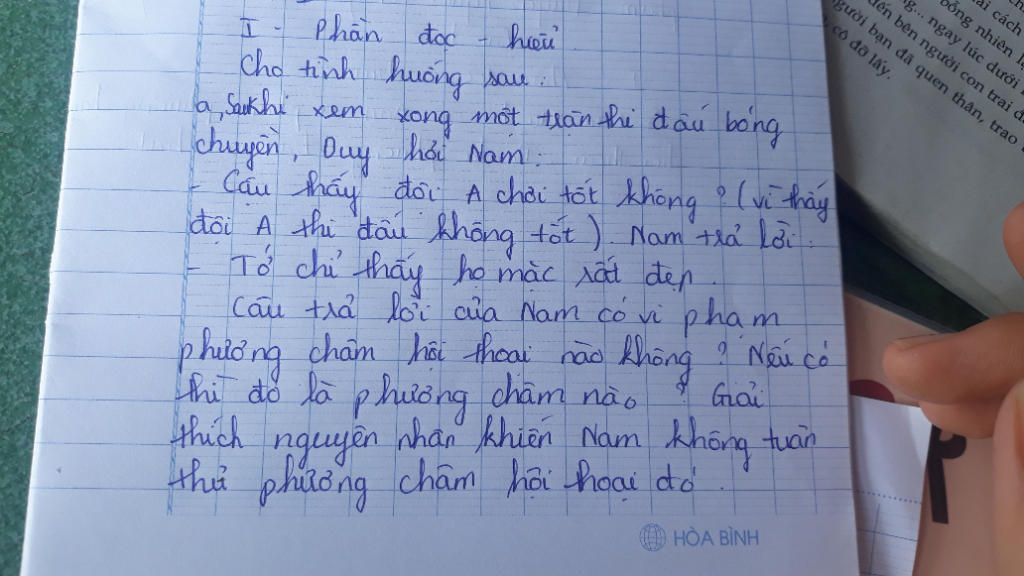 I - Phần đọc - hiểu
Cho tình huống sau:
a, Sau khi xem xong một trận thi đấu bóng
chuyền, Duy hỏi Nam:
- Cậu thấy đội A chơi tốt không? (vì thấy
đội A thi đấu không tốt). Nam trả lời:
- Tớ chỉ thấy họ mặc rất đẹp.
Câu trả lời của Nam có vi phạm
phương châm hội thoại nào không? Nếu có
thì đó là phương châm nào? Giải
thích nguyên nhân khiến Nam không tuân
thủ phương châm hội thoại đó.
HÒA BÌNH
ải cách
bỗng nhiên
ng... ngay lúc dưới
đến bên người con trai
gười bạn đã quen thân, trao
có đã lấy.